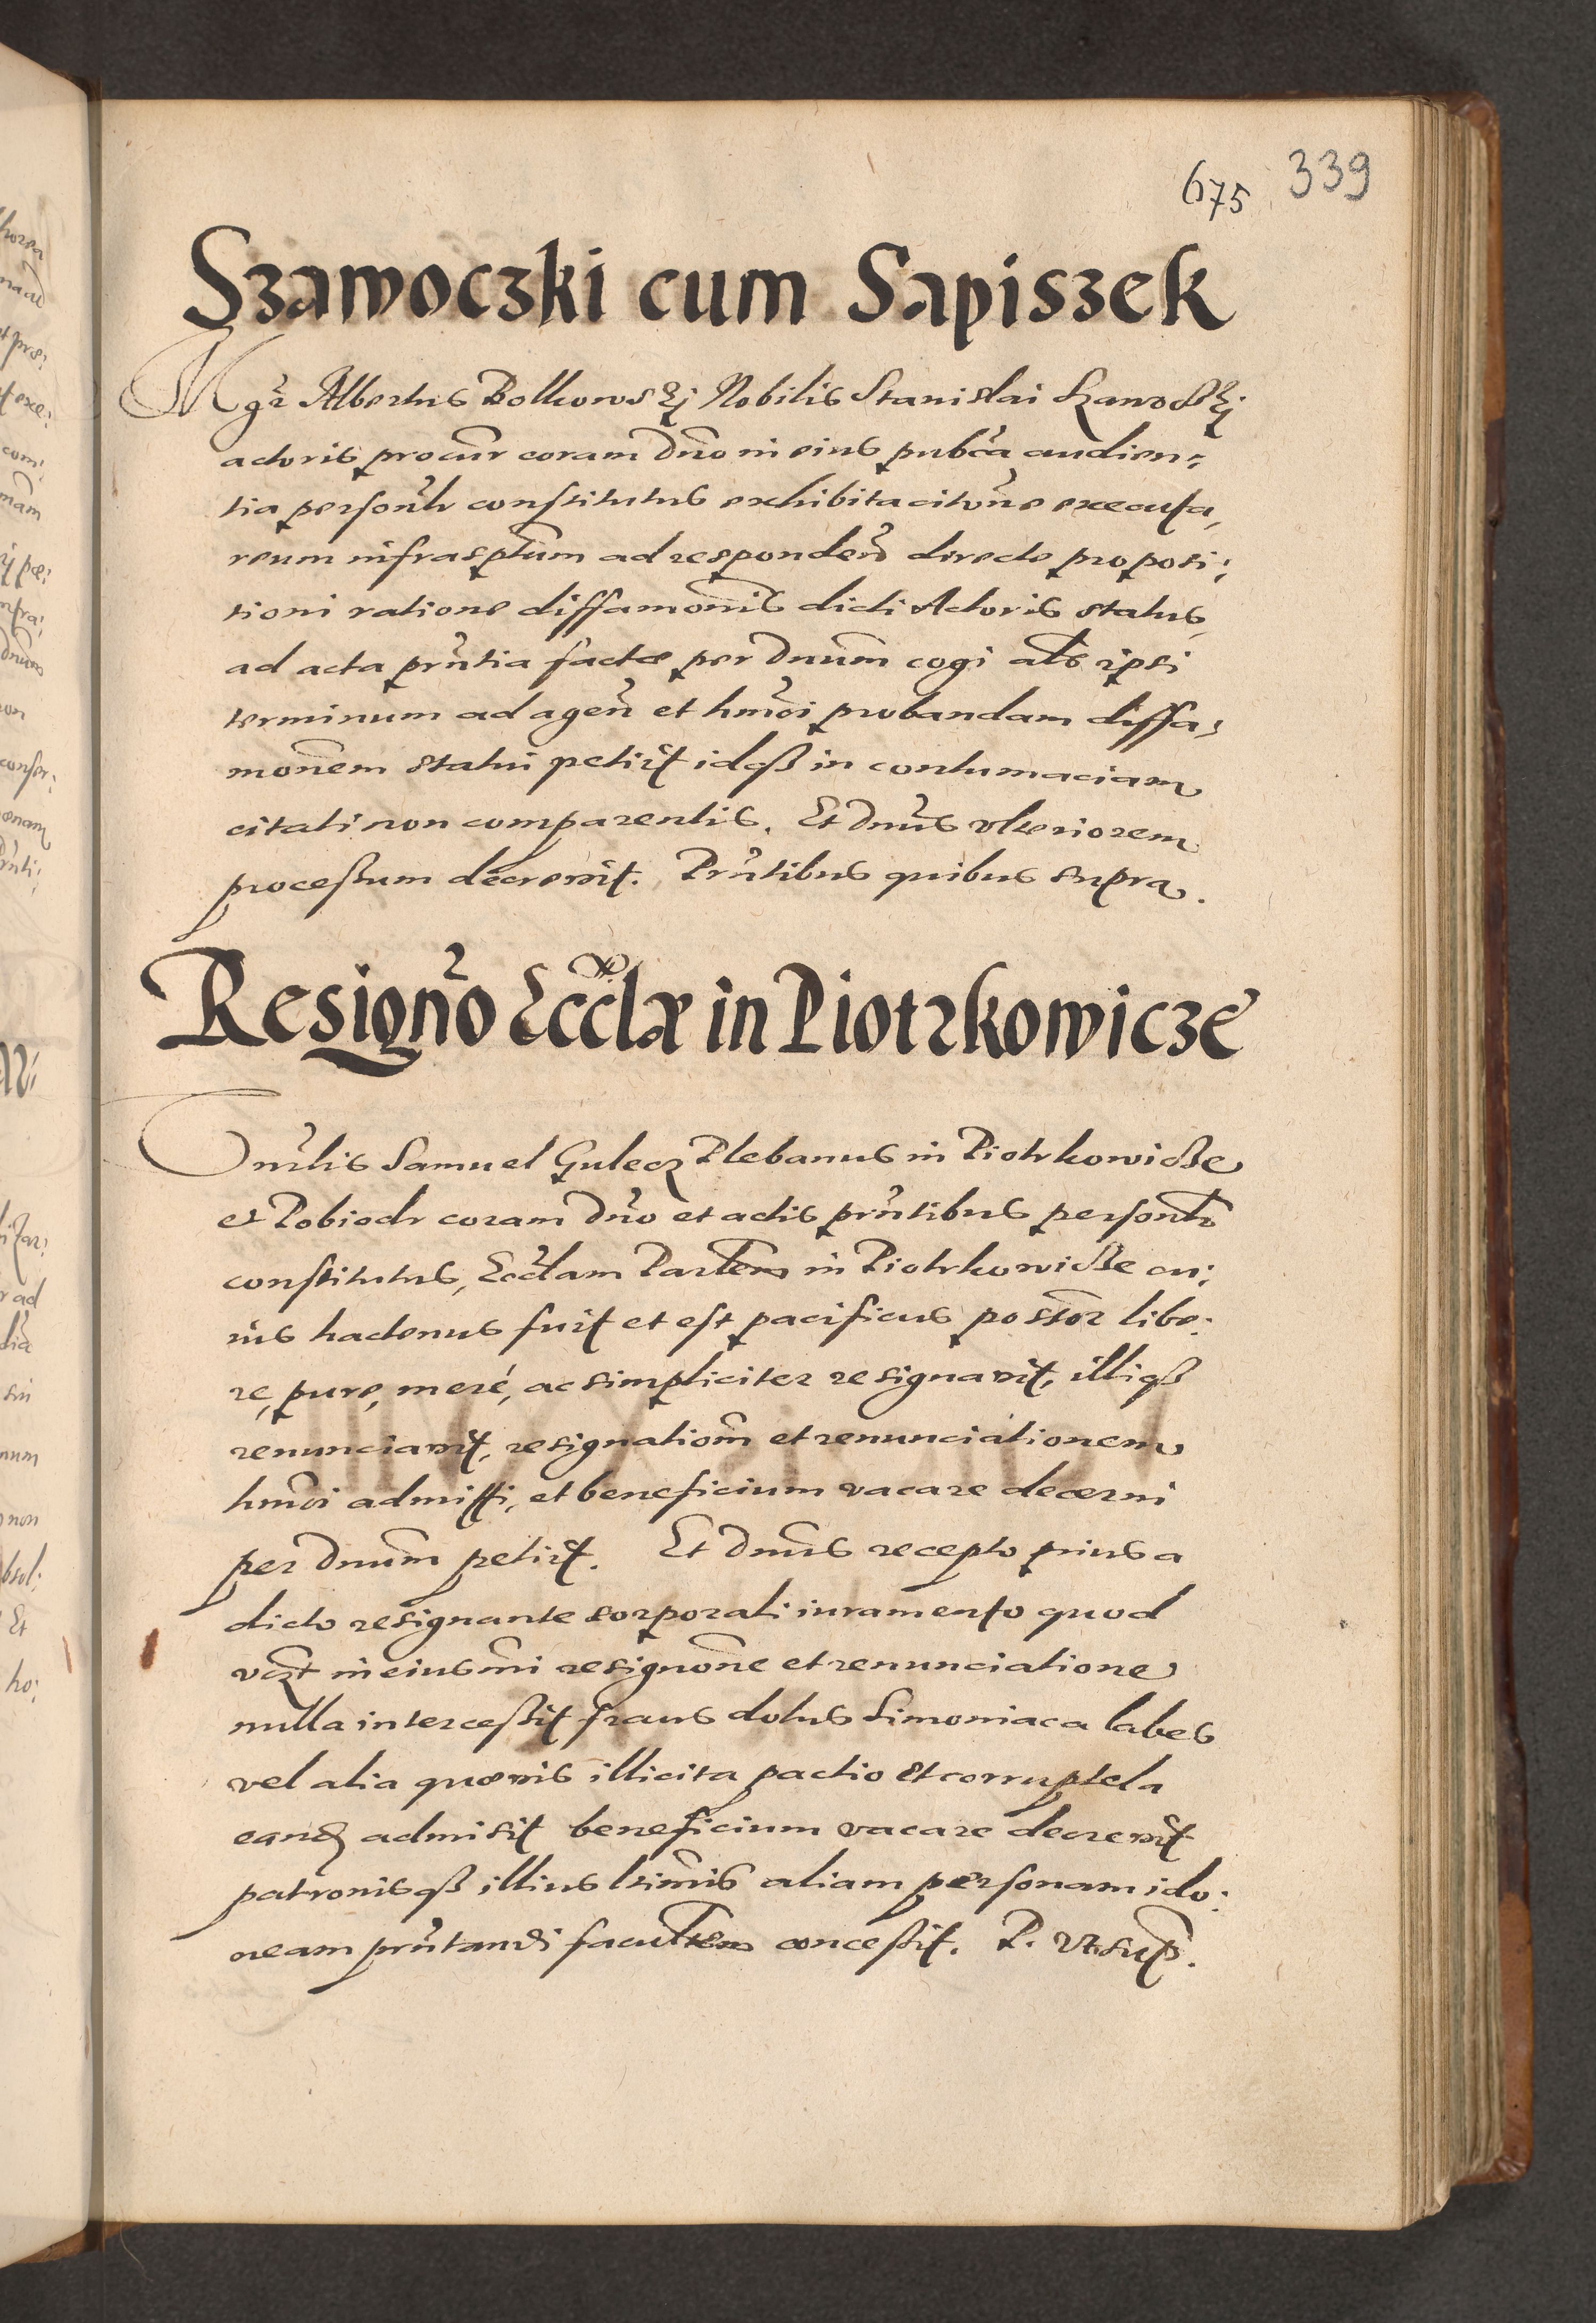 675 339
Szawoczki cum Sapiszek
Mgr Albertus Bolkowskj Nobilis Stanislai Szawoczkj
actoris procur coram Dno in eius pubca audien;
tia personlr constitutus exhibita citone executa,
reum infrasptum ad respondend directe proposi;
tioni ratione diffamonis dicti Actoris status,
ad acta prntia factæ per Dnum cogi als ipsi
terminum ad agen et hmoi probandam diffa,
monem statui petiit idqß in contumaciam
citati non comparentis. Et Dnus vlteriorem
proceßum decrevit. Prntibus quibus supra.
Resigno Eccclæ in Piotrkowicze
Onrlis Samuel Gulecz Plebanus in Piotrkowicze
et Pobiedr coram Dno et actis prntibus personlr
constitutus, Ecclam Parlem in Piotrkowicze cu;
ius hactenus fuit et est pacificus possor libe:
re, pure, meré, ac simpliciter resignavit, illiqß
renunciavit, resignationm et renunciationem
hmoi admitti, et beneficium vacare decerni
per Dnum petiit. Et Dnus recepto prius a
dicto resignante corporali iuramento quod
vczt in eiusmi resignone et renunciatione
nulla interceßit fraus dolus Simoniaca labes
vel alia quævis illicita pactio et corruptela
eand admisit beneficium vacare decrevit
patronisqß illius ltimis aliam personam ido:
neam prntandi facultem conceßit. P. vt sup.